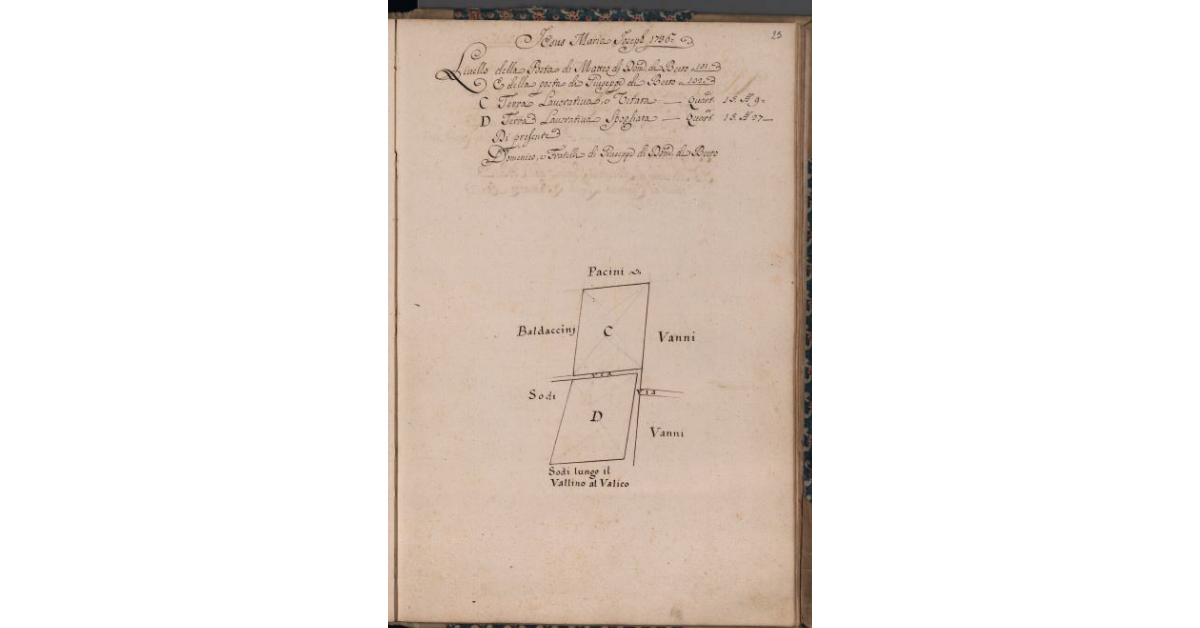 25
Jesus Maria Joseph 1786
Livello della Posta di Matteo di Dom. di Betto 101
E della posta di Giuseppe di Betto
C Terra Lavorativa, e Vitata — Quart. 15. 9
D Terra Lavorativa Spogliata — Quart. 15. 37
Di presente
Domenico, e Fratelli di Giuseppe di Dom. di Betto
Pacini
Baldaccini
C
Vanni
Via
Sodi
Via
D
Vanni
Sodi lungo il
Vallino al Valico